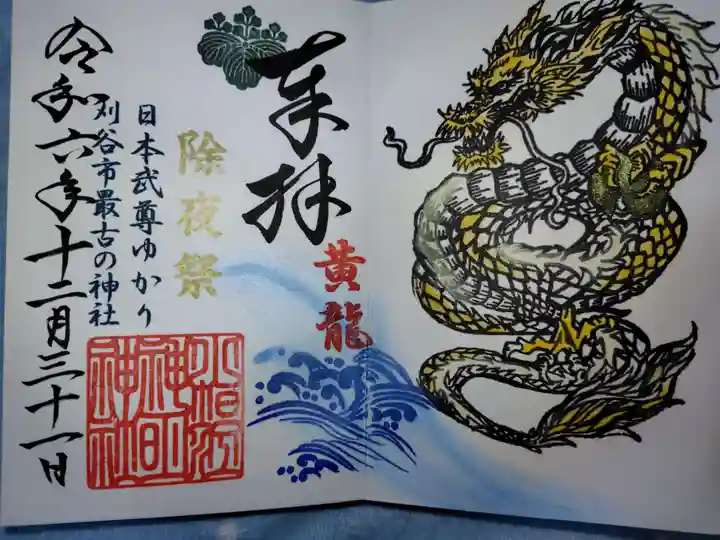 奉拝
黄龍
除夜祭
日本武尊ゆかり
刈谷市最古の神社
令和六年十二月三十一日